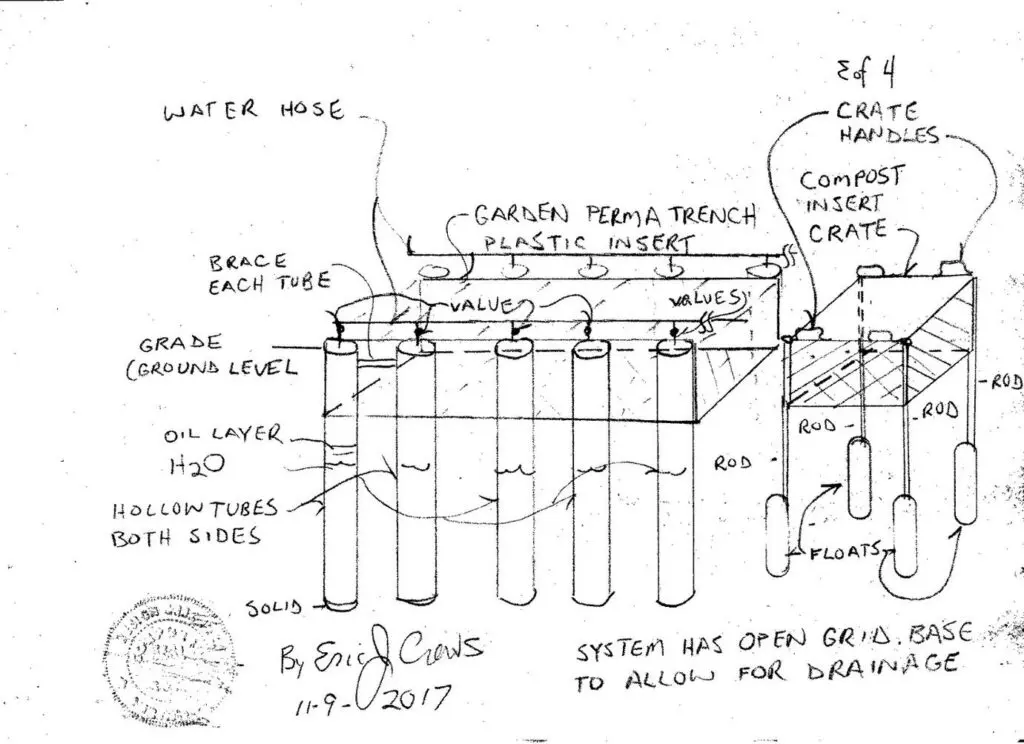 WATER HOSE
GARDEN PERMA TRENCH
PLASTIC INSERT
BRACE
EACH TUBE
VALUE
VALUES
GRADE
(GROUND LEVEL
OIL LAYER
H2O
HOLLOW TUBES
BOTH SIDES
SOLID
of 4
CRATE
HANDLES
COMPOST
INSERT
CRATE
ROD
ROD
ROD
ROD
FLOATS
SYSTEM HAS OPEN GRID BASE
TO ALLOW FOR DRAINAGE
By Eric J Crews
11-9-2017